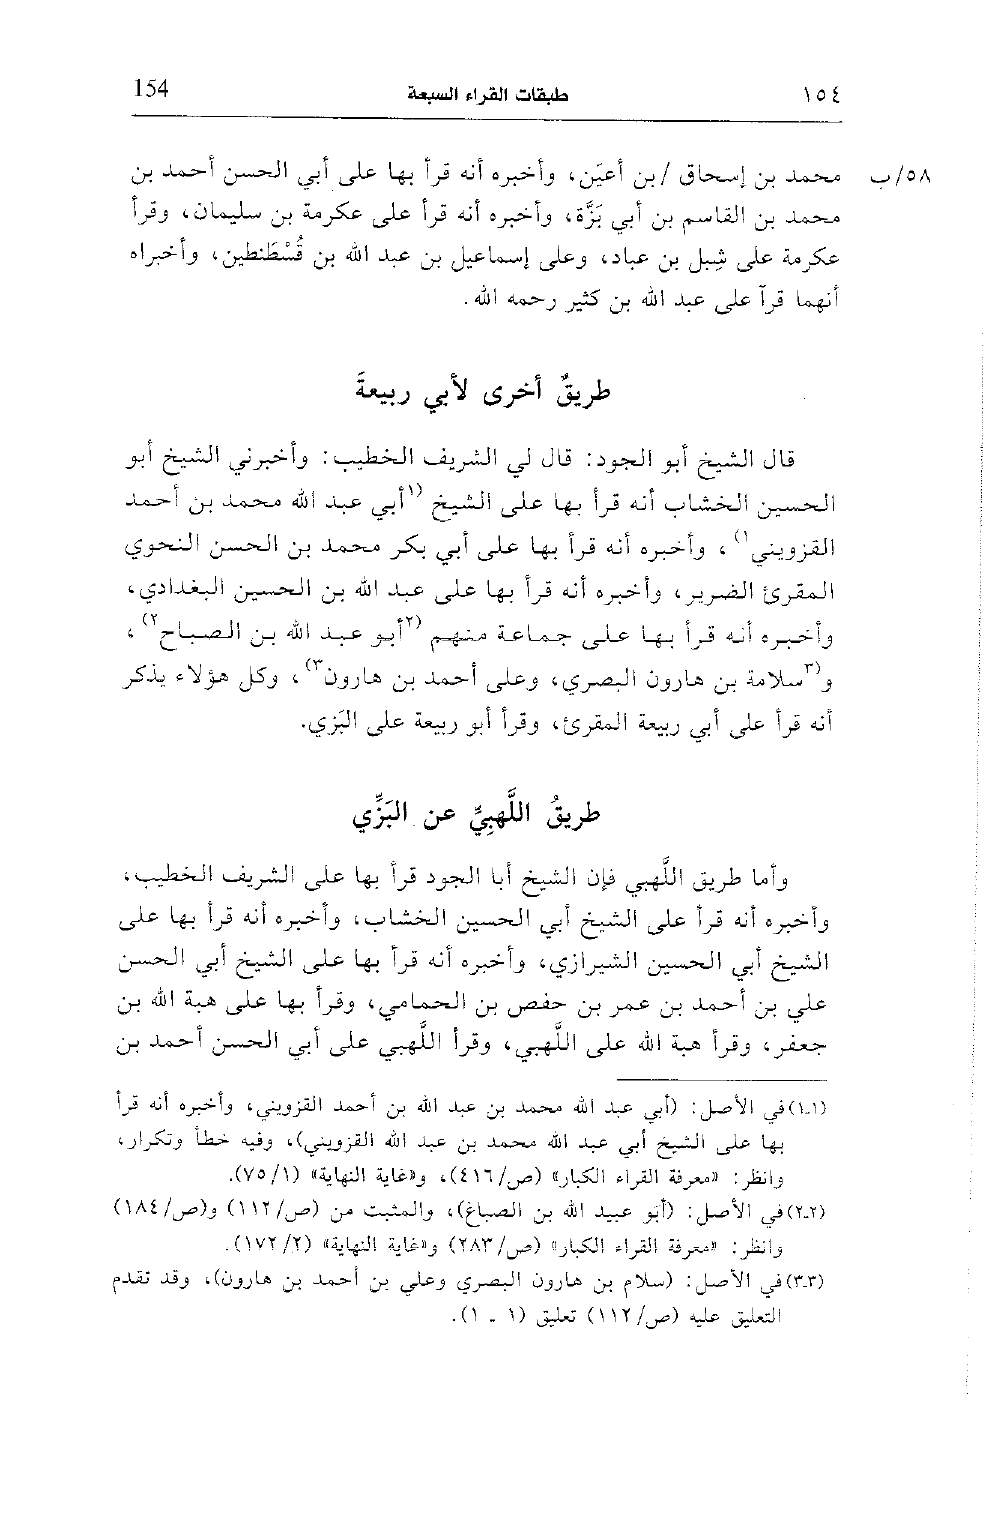 ١٥٤ طبقات القراء السبعة 154
٥٨/ب محمد بن إسحاق /بن أعيَن، وأخبره أنه قرأ بها على أبي الحسن أحمد بن
محمد بن القاسم بن أبي بَزَّة، وأخبره أنه قرأ على عكرمة بن سليمان، وقرأ
عكرمة على شِبل بن عباد، وعلى إسماعيل بن عبد الله بن قُسْطَنطين، وأخبراه
أنهما قرآ على عبد الله بن كثير رحمه الله .
طريقٌ أخرى لأبي ربيعةَ
قال الشيخ أبو الجود: قال لي الشريف الخطيب: وأخبرني الشيخ أبو
الحسين الخشاب أنه قرأ بها على الشيخ (١أبي عبد الله محمد بن أحمد
القزويني١)، وأخبره أنه قرأ بها على أبي بكر محمد بن الحسن النحوي
المقرئ الضرير، وأخبره أنه قرأ بها على عبد الله بن الحسين البغدادي،
وأخبره أنه قرأ بها على جماعة منهم (٢أبو عبد الله بن الصباح٢)،
و(٣سلامة بن هارون البصري، وعلى أحمد بن هارون٣)، وكل هؤلاء يذكر
أنه قرأ على أبي ربيعة المقرئ، وقرأ أبو ربيعة على البَزي.
طريقُ اللَّهبِيِّ عن البَزِّي
وأما طريق اللَّهبي فإن الشيخ أبا الجود قرأ بها على الشريف الخطيب،
وأخبره أنه قرأ على الشيخ أبي الحسين الخشاب، وأخبره أنه قرأ بها على
الشيخ أبي الحسين الشيرازي، وأخبره أنه قرأ بها على الشيخ أبي الحسن
علي بن أحمد بن عمر بن حفص بن الحمامي، وقرأ بها على هبة الله بن
جعفر، وقرأ هبة الله على اللَّهبي، وقرأ اللَّهبي على أبي الحسن أحمد بن
(١-١) في الأصل: (أبي عبد الله محمد بن عبد الله بن أحمد القزويني، وأخبره أنه قرأ
بها على الشيخ أبي عبد الله محمد بن عبد الله القزويني)، وفيه خطأ وتكرار،
وانظر: «معرفة القراء الكبار» (ص/٤١٦)، و«غاية النهاية» (١/ ٧٥).
(٢-٢) في الأصل: (أبو عبيد الله بن الصباغ)، والمثبت من (ص/١١٢) و(ص/١٨٤)
وانظر: «معرفة القراء الكبار» (ص/٢٨٣) و«غاية النهاية» (٢/ ١٧٢).
(٣-٣) في الأصل: (سلام بن هارون البصري وعلي بن أحمد بن هارون)، وقد تقدم
التعليق عليه (ص/١١٢) تعليق (١ - ١).